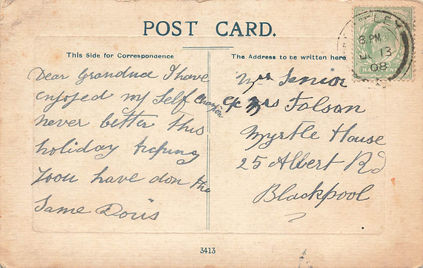 POST CARD.
This Side for Correspondence
The Address to be written here
Dear Grandma I have
enjoyed my self
never better this
holiday hoping
yoou have don the
Same Doris
Mrs Senior
c/o Mrs Folson
Myrtle House
25 Albert Rd
Blackpool
8 PM
13
08
3413